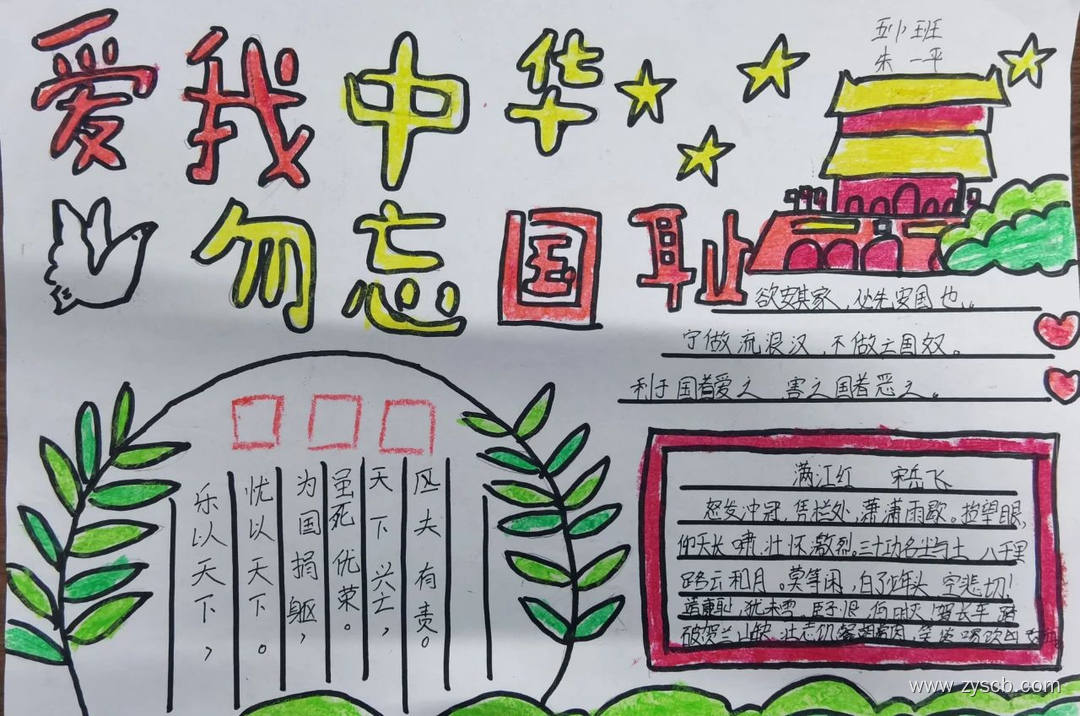 爱我中华
五小班
朱一平
勿忘国耻
欲安其家,必先安国也。
宁做流浪汉,不做亡国奴。
利于国者爱之 害之国者恶之。
乐以天下,
忧以天下。
为国捐躯,
虽死优荣。
天下兴亡,
匹夫有责。
满江红 宋岳飞
怒发冲冠,凭栏处,潇潇雨歇。抬望眼,
仰天长啸,壮怀激烈。三十功名尘与土,八千里
路云和月。莫等闲,白了少年头 空悲切!
靖康耻,犹未雪 臣子恨,何时灭 驾长车 踏
破贺兰山缺 壮志饥
www.zyscb.com